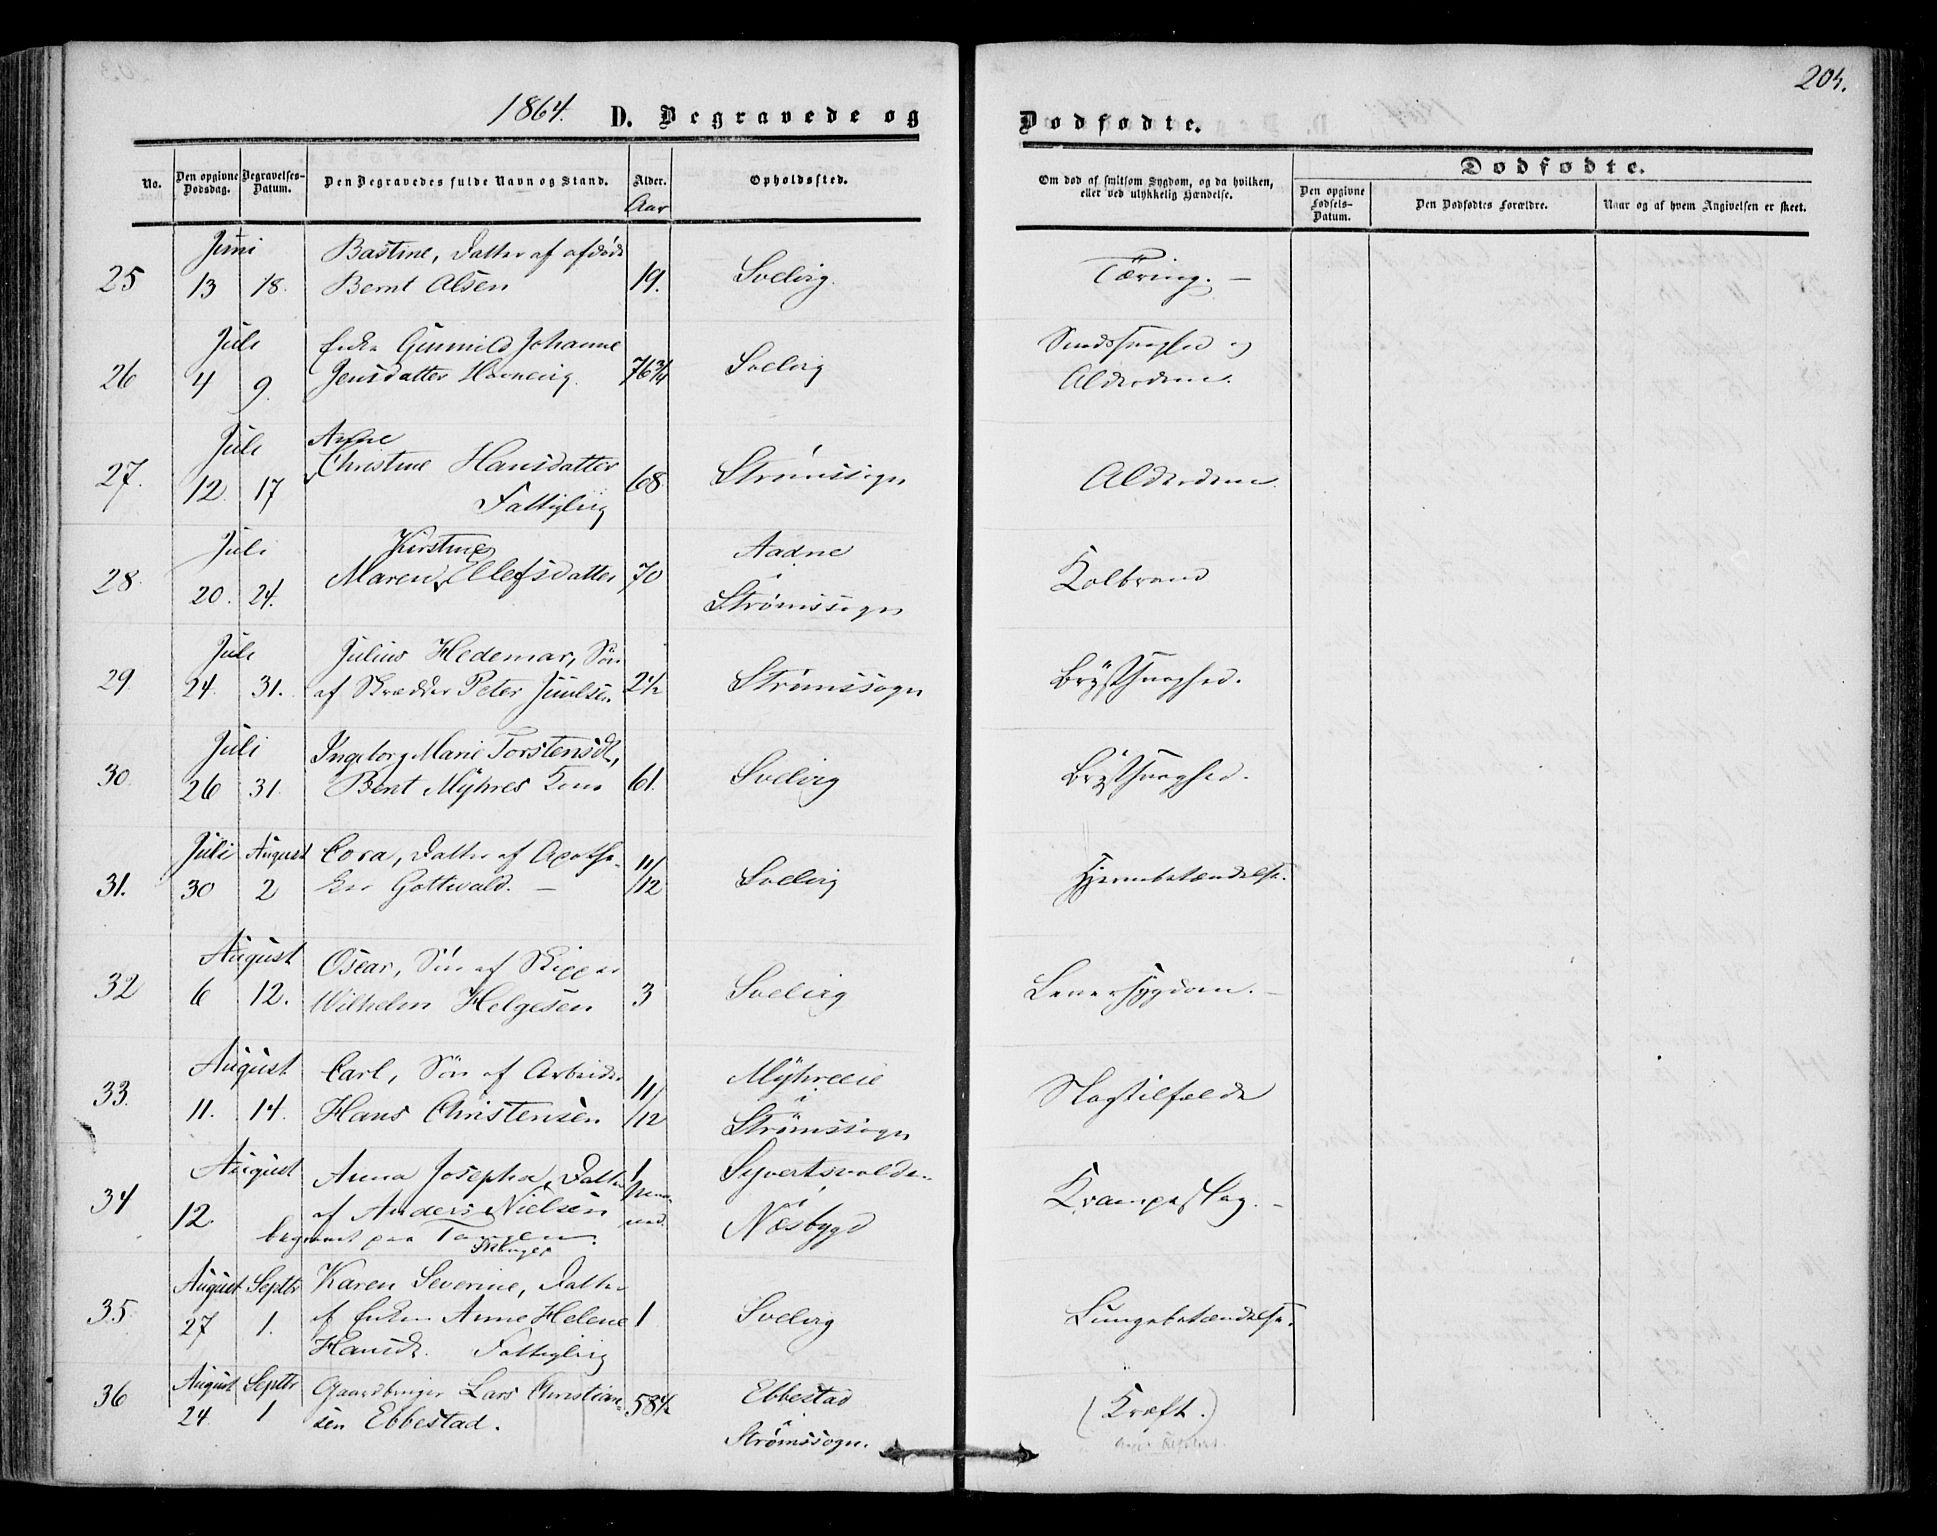 1864.
D. Begravede og
Dodfødte.
204.
No.
Den opgivne Dødsdag.
Begravelses-Datum.
Den Begravedes fulde Navn og Stand.
Alder.
Aar
Opholdssted.
Om død af smitsom Sygdom, og da hvilken,
eller ved ulykkelig Hændelse.
Dødfødte.
Den opgivne Fødsels-Datum.
Den Dødfødtes Forældre.
Naar og af hvem Angivelsen er skeet.
Juni Bastine, Datter af afdøde
25 13 18. Bernt Olsen 19. Svelvig. Tæring. —
Juli Enke Gunnild Johanne Sindssvaghed og
26 4 9. Jensdatter Havnevig. 76 3/4 Svelvig Alderdom.
Juli Anne
27. 12. 17 Christine Hansdatter 68 Strømssogn Alderdom.
Fattiglig
Juli Kirstine Aadne
28 20. 24. Maren Ellefsdatter 70 i Kolbrand
Strømssogn
Juli Julius Hedemar, Søn
29 24. 31. af Skrædder Peter Juulsen 2 1/2 Strømssogn Brystsvaghed.
Juli Ingeborg Marie Torstensdt,
30 26 31. Bent Myhres Kone 61. Svelvig Brystsvaghed.
Juli August Cora, Datter af Apothe-
31. 30 2 ker Gottwald. — 11/12 Svelvig Hjernebetændelse.
August Oscar, Søn af Skipper
32 6 12. Wilhelm Helgesen 3 Svelvig Leversygdom. —
August Carl, Søn af Arbeider Myhreeie
33. 11. 14. Hans Christensen 11/12 i Slagtilfælde
Strømssogn
August Anna Josepha, Datter 1 Syvertsvolden
34 12. af Anders Nielsen i Krampeslag. —
begravet paa Tangen. Næsbygd
August Septbr Karen Severine, Datter
35. 27 1. af Enken Anne Helene 1 Svelvig Lungebetændelse.
Hansdt. Fattiglig
August Septbr Gaardbruger Lars Christian- Ebbestad
36 24. 1 sen Ebbestad. 58 1/2 i (Kræft.)
Strømssogn.